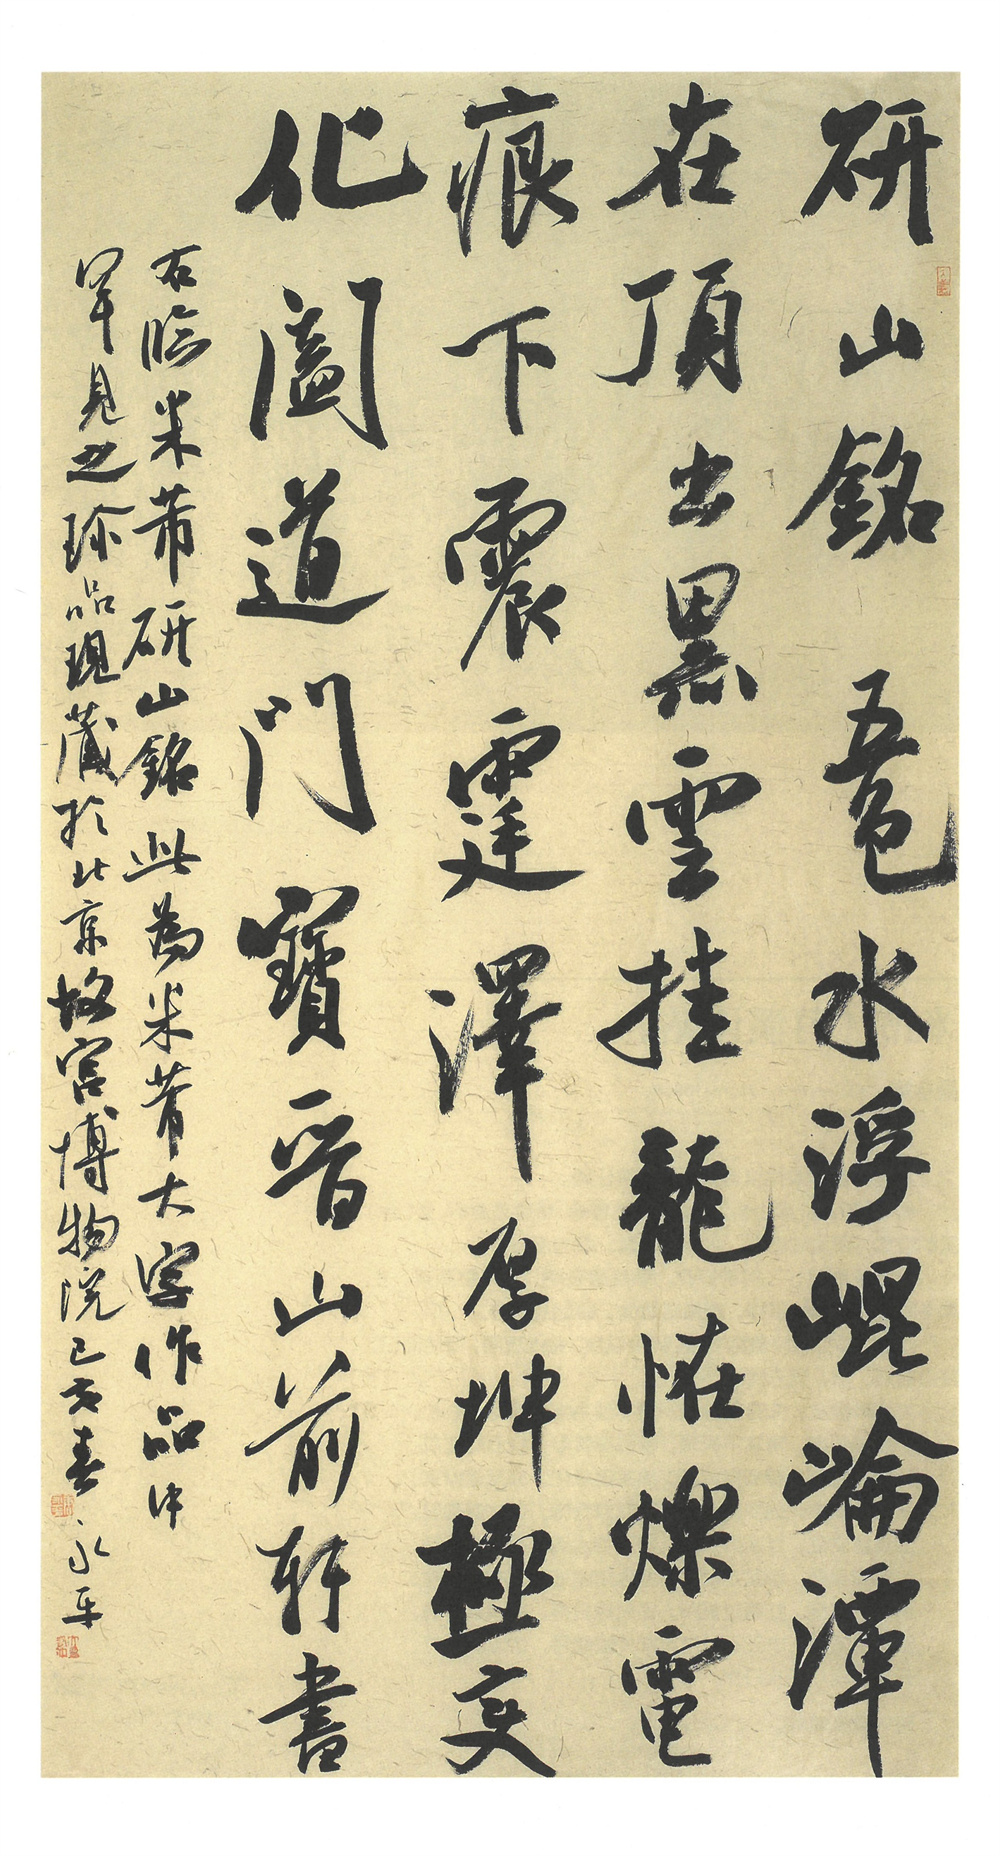 研山銘五色水浮崐崘潭
在頂出黑雲挂龍恠爍電
痕下震霆澤厚坤極变
化闔道門寶晉山前軒書
右臨米芾研山銘此為米芾大字作品中
罕見之珎品現藏於北京故宮博物院己亥春永平